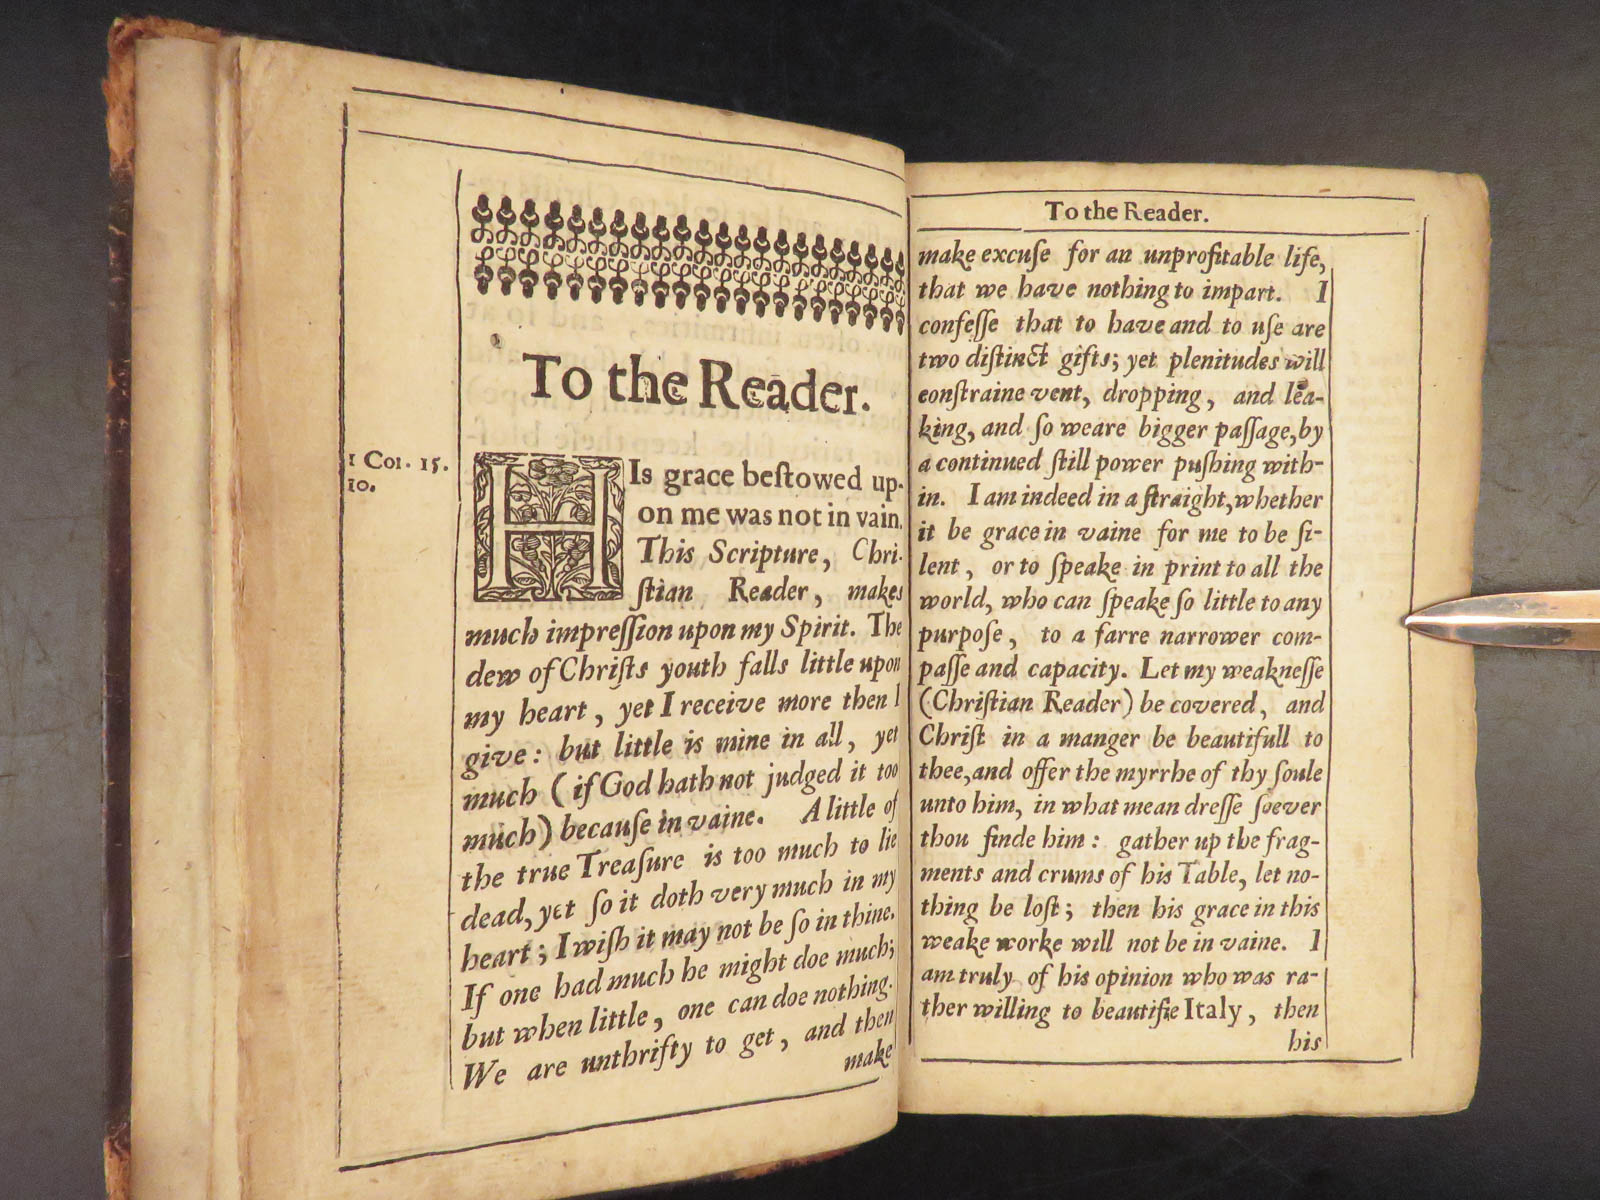 To the Reader.
1 Cor. 15.
10.
HIs grace bestowed up-
on me was not in vain.
This Scripture, Chri-
ſtian Reader, makes
much impreſſion upon my Spirit. The
dew of Chriſts youth falls little upon
my heart, yet I receive more then I
give: but little is mine in all, yet
much (if God hath not judged it too
much) becauſe in vaine. A little of
the true Treaſure is too much to lie
dead, yet ſo it doth very much in my
heart; I wiſh it may not be ſo in thine.
If one had much he might doe much;
but when little, one can doe nothing.
We are unthrifty to get, and then
make
To the Reader.
make excuſe for an unprofitable life,
that we have nothing to impart. I
confeſſe that to have and to uſe are
two diſtinct gifts; yet plenitudes will
conſtraine vent, dropping, and lea-
king, and ſo weare bigger paſſage, by
a continued ſtill power puſhing with-
in. I am indeed in a ſtraight, whether
it be grace in vaine for me to be ſi-
lent, or to ſpeake in print to all the
world, who can ſpeake ſo little to any
purpoſe, to a farre narrower com-
paſſe and capacity. Let my weakneſſe
(Chriſtian Reader) be covered, and
Chriſt in a manger be beautifull to
thee, and offer the myrrhe of thy ſoule
unto him, in what mean dreſſe ſoever
thou finde him: gather up the frag-
ments and crums of his Table, let no-
thing be loſt; then his grace in this
weake worke will not be in vaine. I
am truly of his opinion who was ra-
ther willing to beautifie Italy, then
his